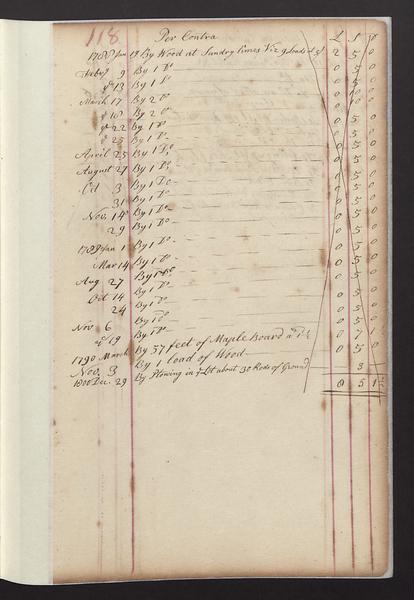 118 Per Contra L S D
1788 Jan 19 By Wood at Sundry times Viz 9 loads at 5/ 2 5 0
Feby 9 By 1 Do 0 5 0
& 13 By 1 Do 0 5 0
March 17 By 2 Do 0 10 0
& 18 By 2 Do 0 10 0
& 22 By 1 Do 0 5 0
& 25 By 1 Do 0 5 0
April 25 By 1 Do 0 5 0
August 27 By 1 Do 0 5 0
Oct 3 By 1 Do 0 5 0
31 By 1 Do 0 5 0
Nov. 14 By 1 Do 0 5 0
29 By 1 Do 0 5 0
1789 Jan 1 By 1 Do 0 5 0
Mar 14 By 1 Do 0 5 0
Aug 27 By 1 Do 0 5 0
Oct 14 By 1 Do 0 5 0
24 By 1 Do 0 5 0
Nov 6 By 1 Do 0 5 0
& 19 By 1 Do 0 5 0
1790 March By 57 feet of Maple Board 0 7 1
Nov. 3 By 1 load of Wood 0 5 0
1800 Dec. 29 By Plowing in Lot about 30 Rods of Ground 3
8 5 1